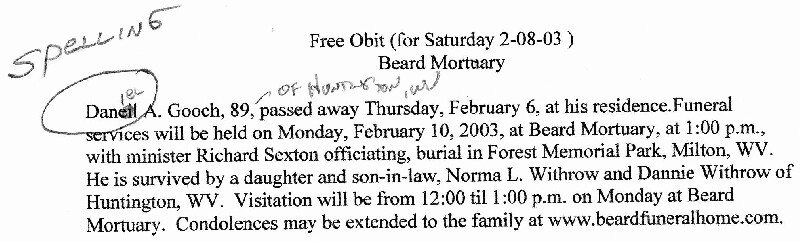 SPELLING
Free Obit (for Saturday 2-08-03 )
Beard Mortuary
iel
OF HUNTINGTON, WV
Daneil A. Gooch, 89, passed away Thursday, February 6, at his residence.Funeral
services will be held on Monday, February 10, 2003, at Beard Mortuary, at 1:00 p.m.,
with minister Richard Sexton officiating, burial in Forest Memorial Park, Milton, WV.
He is survived by a daughter and son-in-law, Norma L. Withrow and Dannie Withrow of
Huntington, WV. Visitation will be from 12:00 til 1:00 p.m. on Monday at Beard
Mortuary. Condolences may be extended to the family at www.beardfuneralhome.com.